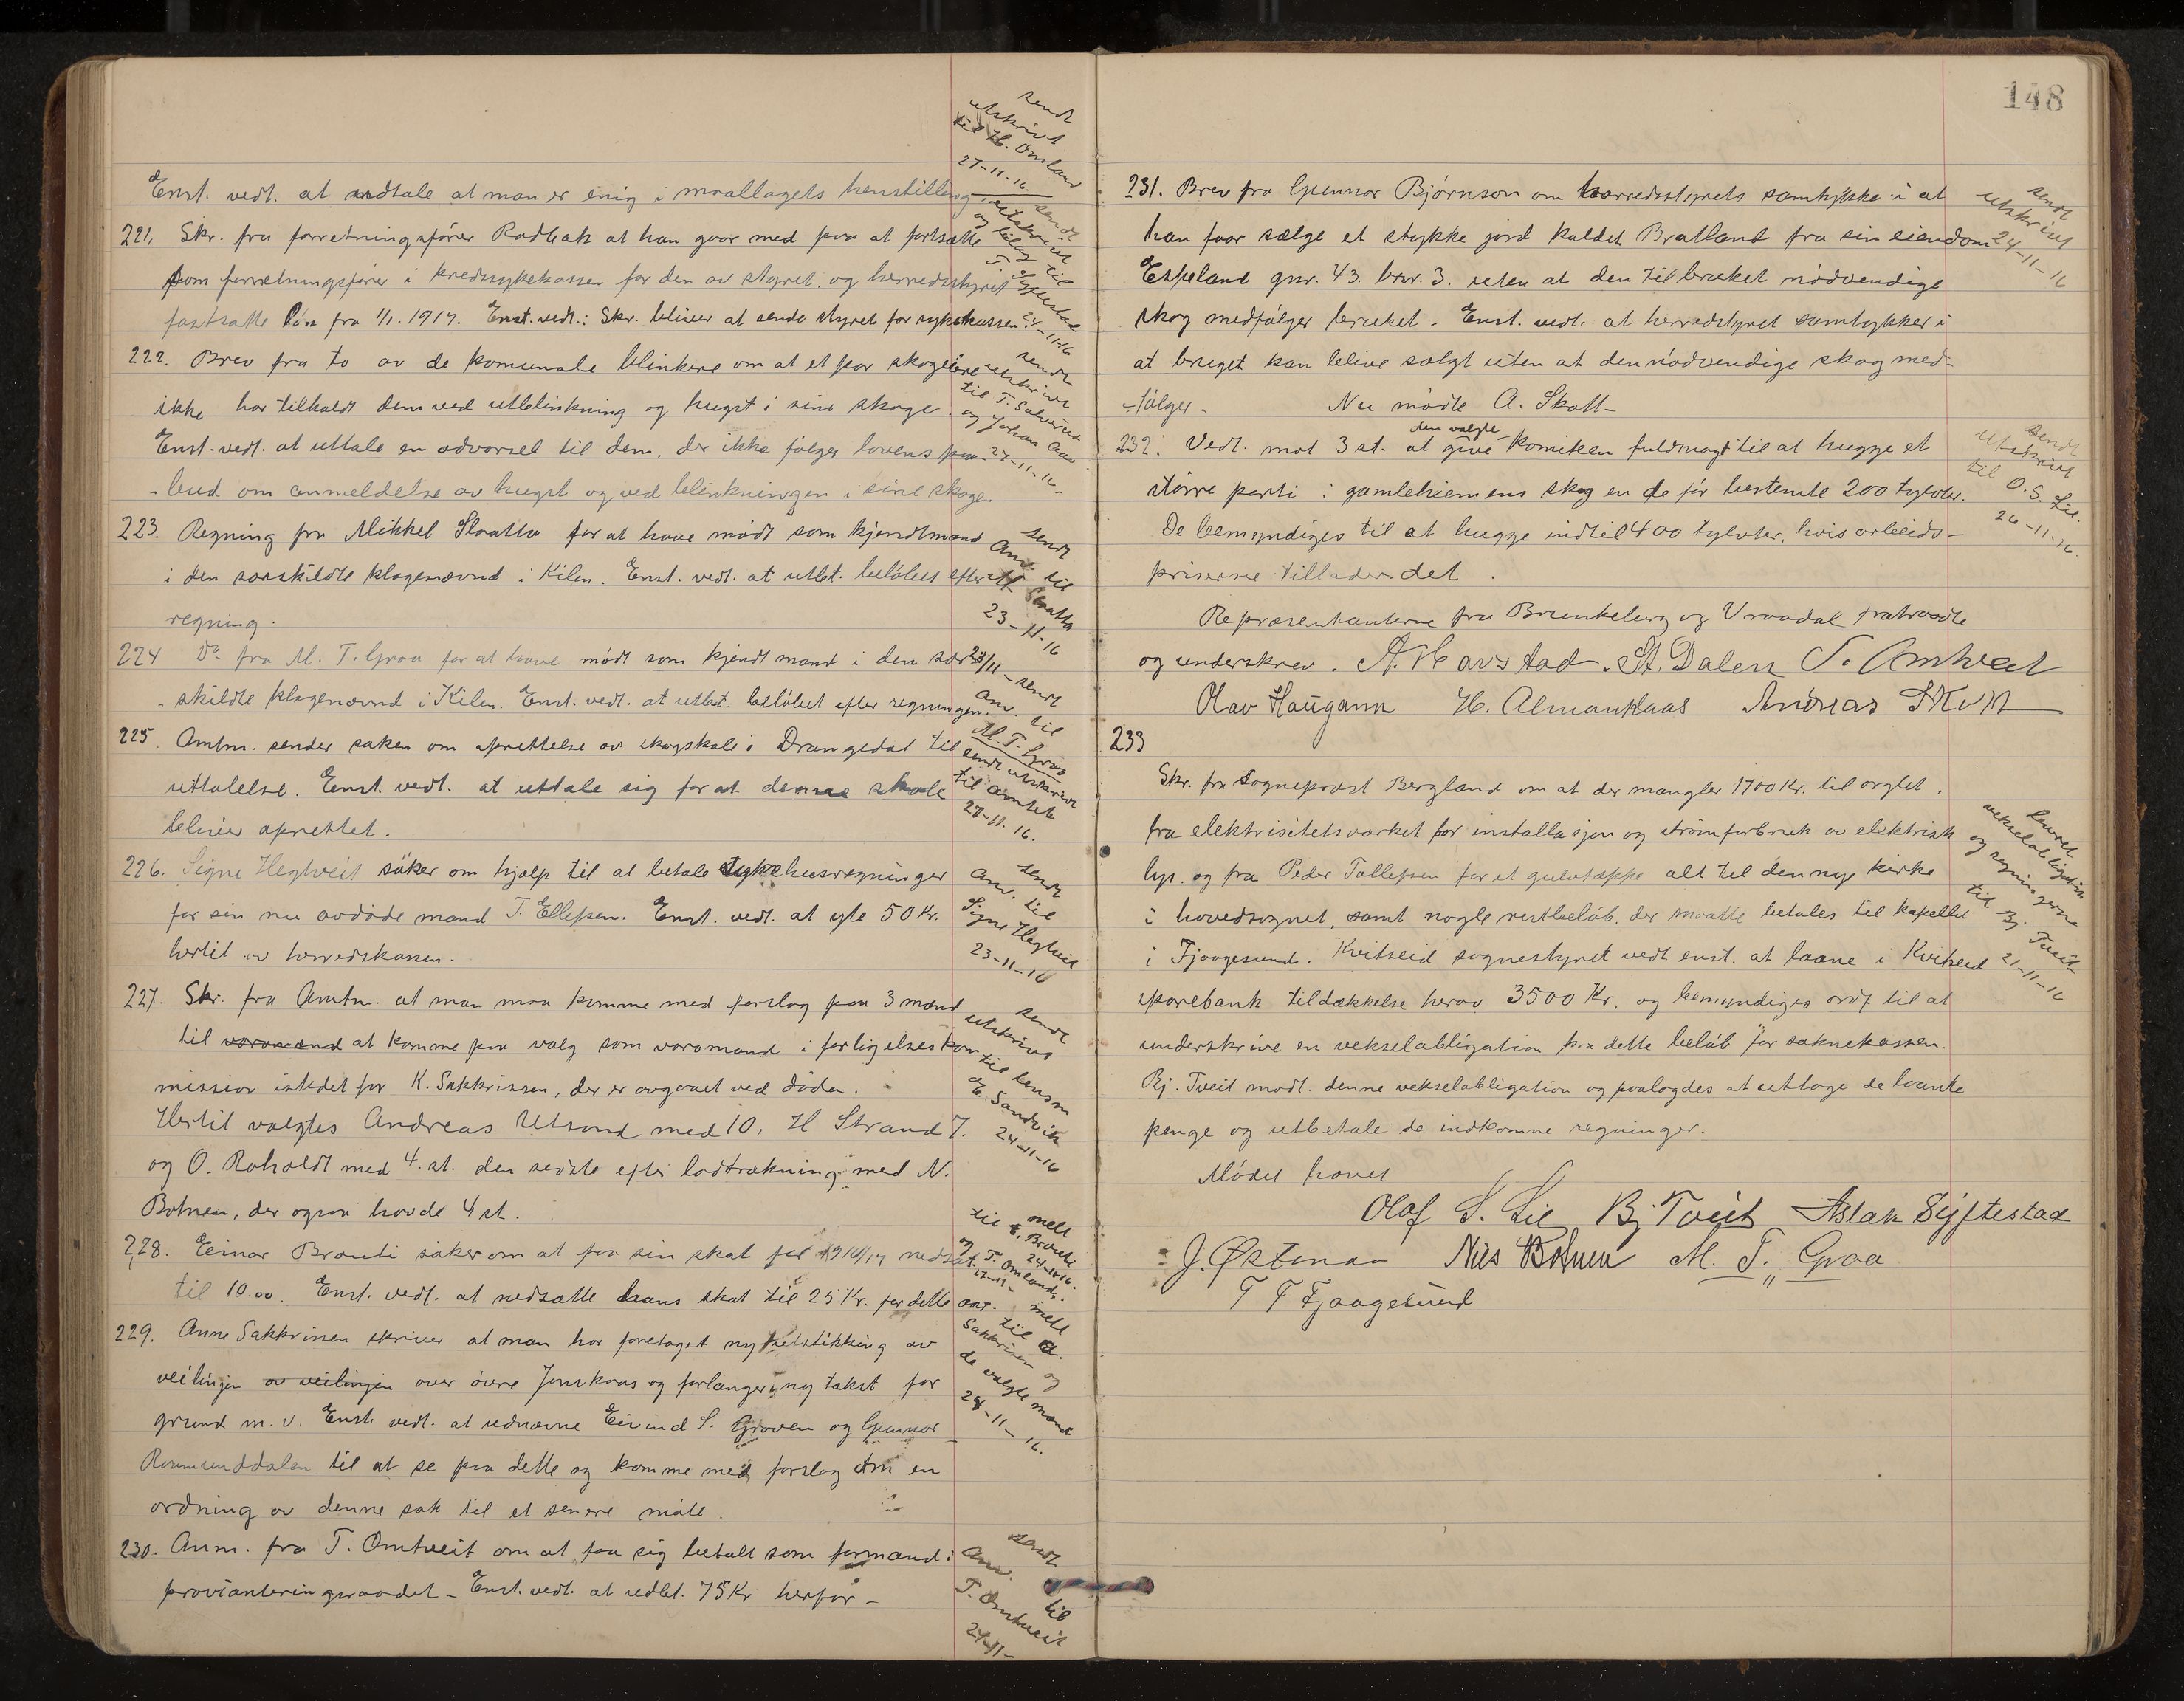 Enst. vedt. at udtale at man er enig i maallagets henstilling.
sendt
utskrivt
til H. Omland
27-11-16.
221. Skr. fra forretningsfører Rodbak at han gaar med paa at fortsætte
som forretningsfører i kredssykekassen for den av styret og herredsstyret
fastsatte løn fra 1/1. 1917. Enst. vedt.: Skr. bliver at sende styret for sykekassen.
sendt
utskrivt
til
24-11-16
222. Brev fra to av de komunale blinkere om at et par skogeiere
ikke har tilkaldt dem ved utblinkning og hugst i sine skoge.
Enst. vedt. at uttale en advarsel til dem, der ikke følger lovens paa-
-bud om anmeldelse av hugst og ved blinkningen i sine skoge.
sendt
utskrivt
til T.
og Johan
27-11-16-
223. Regning fra Mikkel Skratta for at have mødt som kjendtmand
i den særskildte klagenævnd i Kilen. Enst. vedt. at utbet. beløbet efter
regning.
sendt
Anv. til
M. Skratta
23-11-16
224 Do fra M. T. Graa for at have mødt som kjendtmand i den sær-
-skildte klagenævnd i Kilen. Enst. vedt. at utbet. beløbet efter regningen.
23/11 - sendt
anv. til
M. T. Graa
225. Amtm. sender saken om oprettelse av skogskole i Drangedal til
uttalelse. Enst. vedt. at uttale sig for at denne skole
bliver oprettet.
sendt utskrivt
til amtet
27-11-16.
226. Signe Hegtveit søker om hjælp til at betale sykehusregninger
for sin nu avdøde mand T. Ellefsen. Enst. vedt. at yte 50 Kr.
hertil av herredskassen.
sendt
Anv. til
Signe Hegtveit
23-11-16
227. Skr. fra Amtm. at man maa komme med forslag paa 3 mænd
til varamænd at komme paa valg som varamand i forligelseskom
mission istedet for K. Sakkrissen, der er avgaaet ved døden.
Hertil valgtes Andreas Utsond med 10, H Strand 7.
og O. Roholdt med 4. st. den sidste efter lodtrækning med N.
Botnen, der ogsaa havde 4 st.
sendt
utskrivt
til lensm
E. Sandvik
24-11-16
228. Einar Brauti søker om at faa sin skat for 1916/17 nedsat
til 10.00. Enst. vedt. at nedsætte hans skat til 25 Kr. for dette aar.
melt
til E. Brauti
24-11-16.
og T. Omland.
27-11-
229. Anne Sakkrissen skriver at man har foretaget ny utstikking av
veilinjen av veilinjen over øvre Jonskaas og forlanger ny takst for
grund m. v. Enst. vedt. at udnævne Eivind S. Groven og Gunnar
til at se paa dette og komme med forslag om en
ordning av denne sak til et senere møte.
melt
til A.
Sakkrisen og
de valgte mænd
24-11-16.
230. Anm. fra T. Omtveit om at faa sig betalt som formand i
provianteringsraadet - Enst. vedt. at udbet. 75 Kr herfor -
sendt
Anv. til
T. Omtveit
27-11-
148
231. Brev fra Gunnar Bjørnson om herredsstyrets samtykke i at
han faar sælge et stykke jord kaldet Bratland fra sin eiendom
Eskeland gnr. 43. brnr. 3. uten at den til bruket nødvendige
skog medfølger bruket. Enst. vedt. at herredstyret samtykker i
at bruget kan blive solgt uten at den nødvendige skog med-
-følger. Nu mødte A. Skott-
sendt
utskrivt
24-11-16
232. Vedt. mot 3 st. at give den valgte komiteen fuldmagt til at hugge et
større parti i gamlehiemens skog en de før bestemte 200 tylvter.
De bemyndiges til at hugge indtil 400 tylvter, hvis arbeids-
priserne tillader det.
sendt
utskrivt
til O. S. Lie.
26-11-16.
Repræsentanterne fra Brunkeberg og Vraadal fratraadte
og underskrev. A. Havstad. St. Dalen T. Omtveit
Olav Haugann H. Almankaas Andreas Skott
233
Skr. fra Sogneprost Bergland om at der mangler 1700 Kr. til orglet,
fra elektrisitetsværket for installasjon og strømforbruk av elektrisk
lys. og fra Peder Tallefsen for et gulvtæppe alt til den nye kirke
i hovedsognet, samt nogle restbeløb, der maatte betales til kapellet
i Fjaagesund. Kvitseid sognestyret vedt enst. at laane i Kviteseid
sparebank til dækkelse herav 3500 Kr. og bemyndiges ordf til at
underskrive en vekselobligation p.a dette beløb for soknekassen.
Bj. Tveit modt. denne vekselobligation og paalagdes at uttage de laante
penge og utbetale de indkomne regninger.
levret
vekselobligation
og regningerne
til Bj. Tveit
21-11-16
Mødet hævet
Olaf S. Lie Bj Tveit Aslak Sigftestad
J. Østenaa Nils Botnen M. T. Graa
T T Fjaagesund